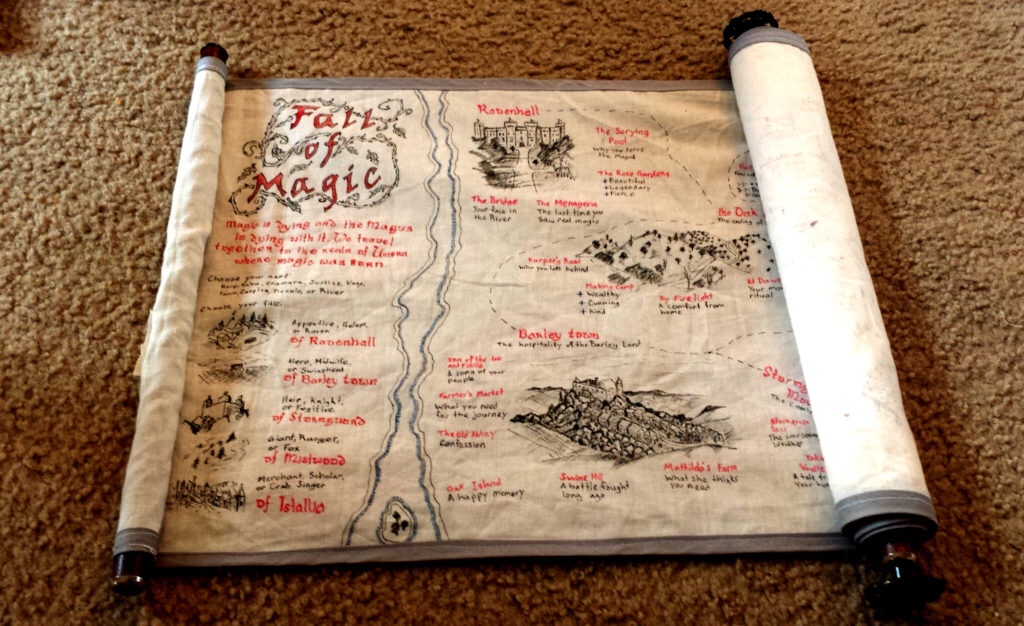 Fall
of
Magic
Magic is dying and the Magus
is dying with it. We travel
together to the realm of Umbra
where magic was born.
Choose your name:
Justice, Vago,
or River
Choose your title:
Apprentice, Golem,
or Raven
of Ravenhall
Hero, Midwife,
or Swineherd
of Barley town
Heir, Knight,
or Fugitive
of Stormguard
Giant, Ranger,
or Fox
of Mistwood
Merchant, Scholar,
or Crab Singer
of Istallia
Ravenhall
The Scrying
Pool
Why you serve
the Magus
The Rose Gardens
+Beautiful
+Legendary
+Fierce
The Bridge
Your face in
the River
The Menagerie
The last time you
saw real magic
the Oak
Harper's Road
Who you left behind
Making Camp
+ Wealthy
+ Cunning
+ Kind
By Firelight
A comfort from
home
At Dawn
ritual
Barley town
The hospitality of the Barley Lord
Inn of the
and Fiddle
A song of your
people
Farmer's Market
What you need
for the journey
The Old Abbey
Confession
Oak Island
A happy memory
Swine Hill
A battle fought
long ago
Mathilda's Farm
What she thinks
you need